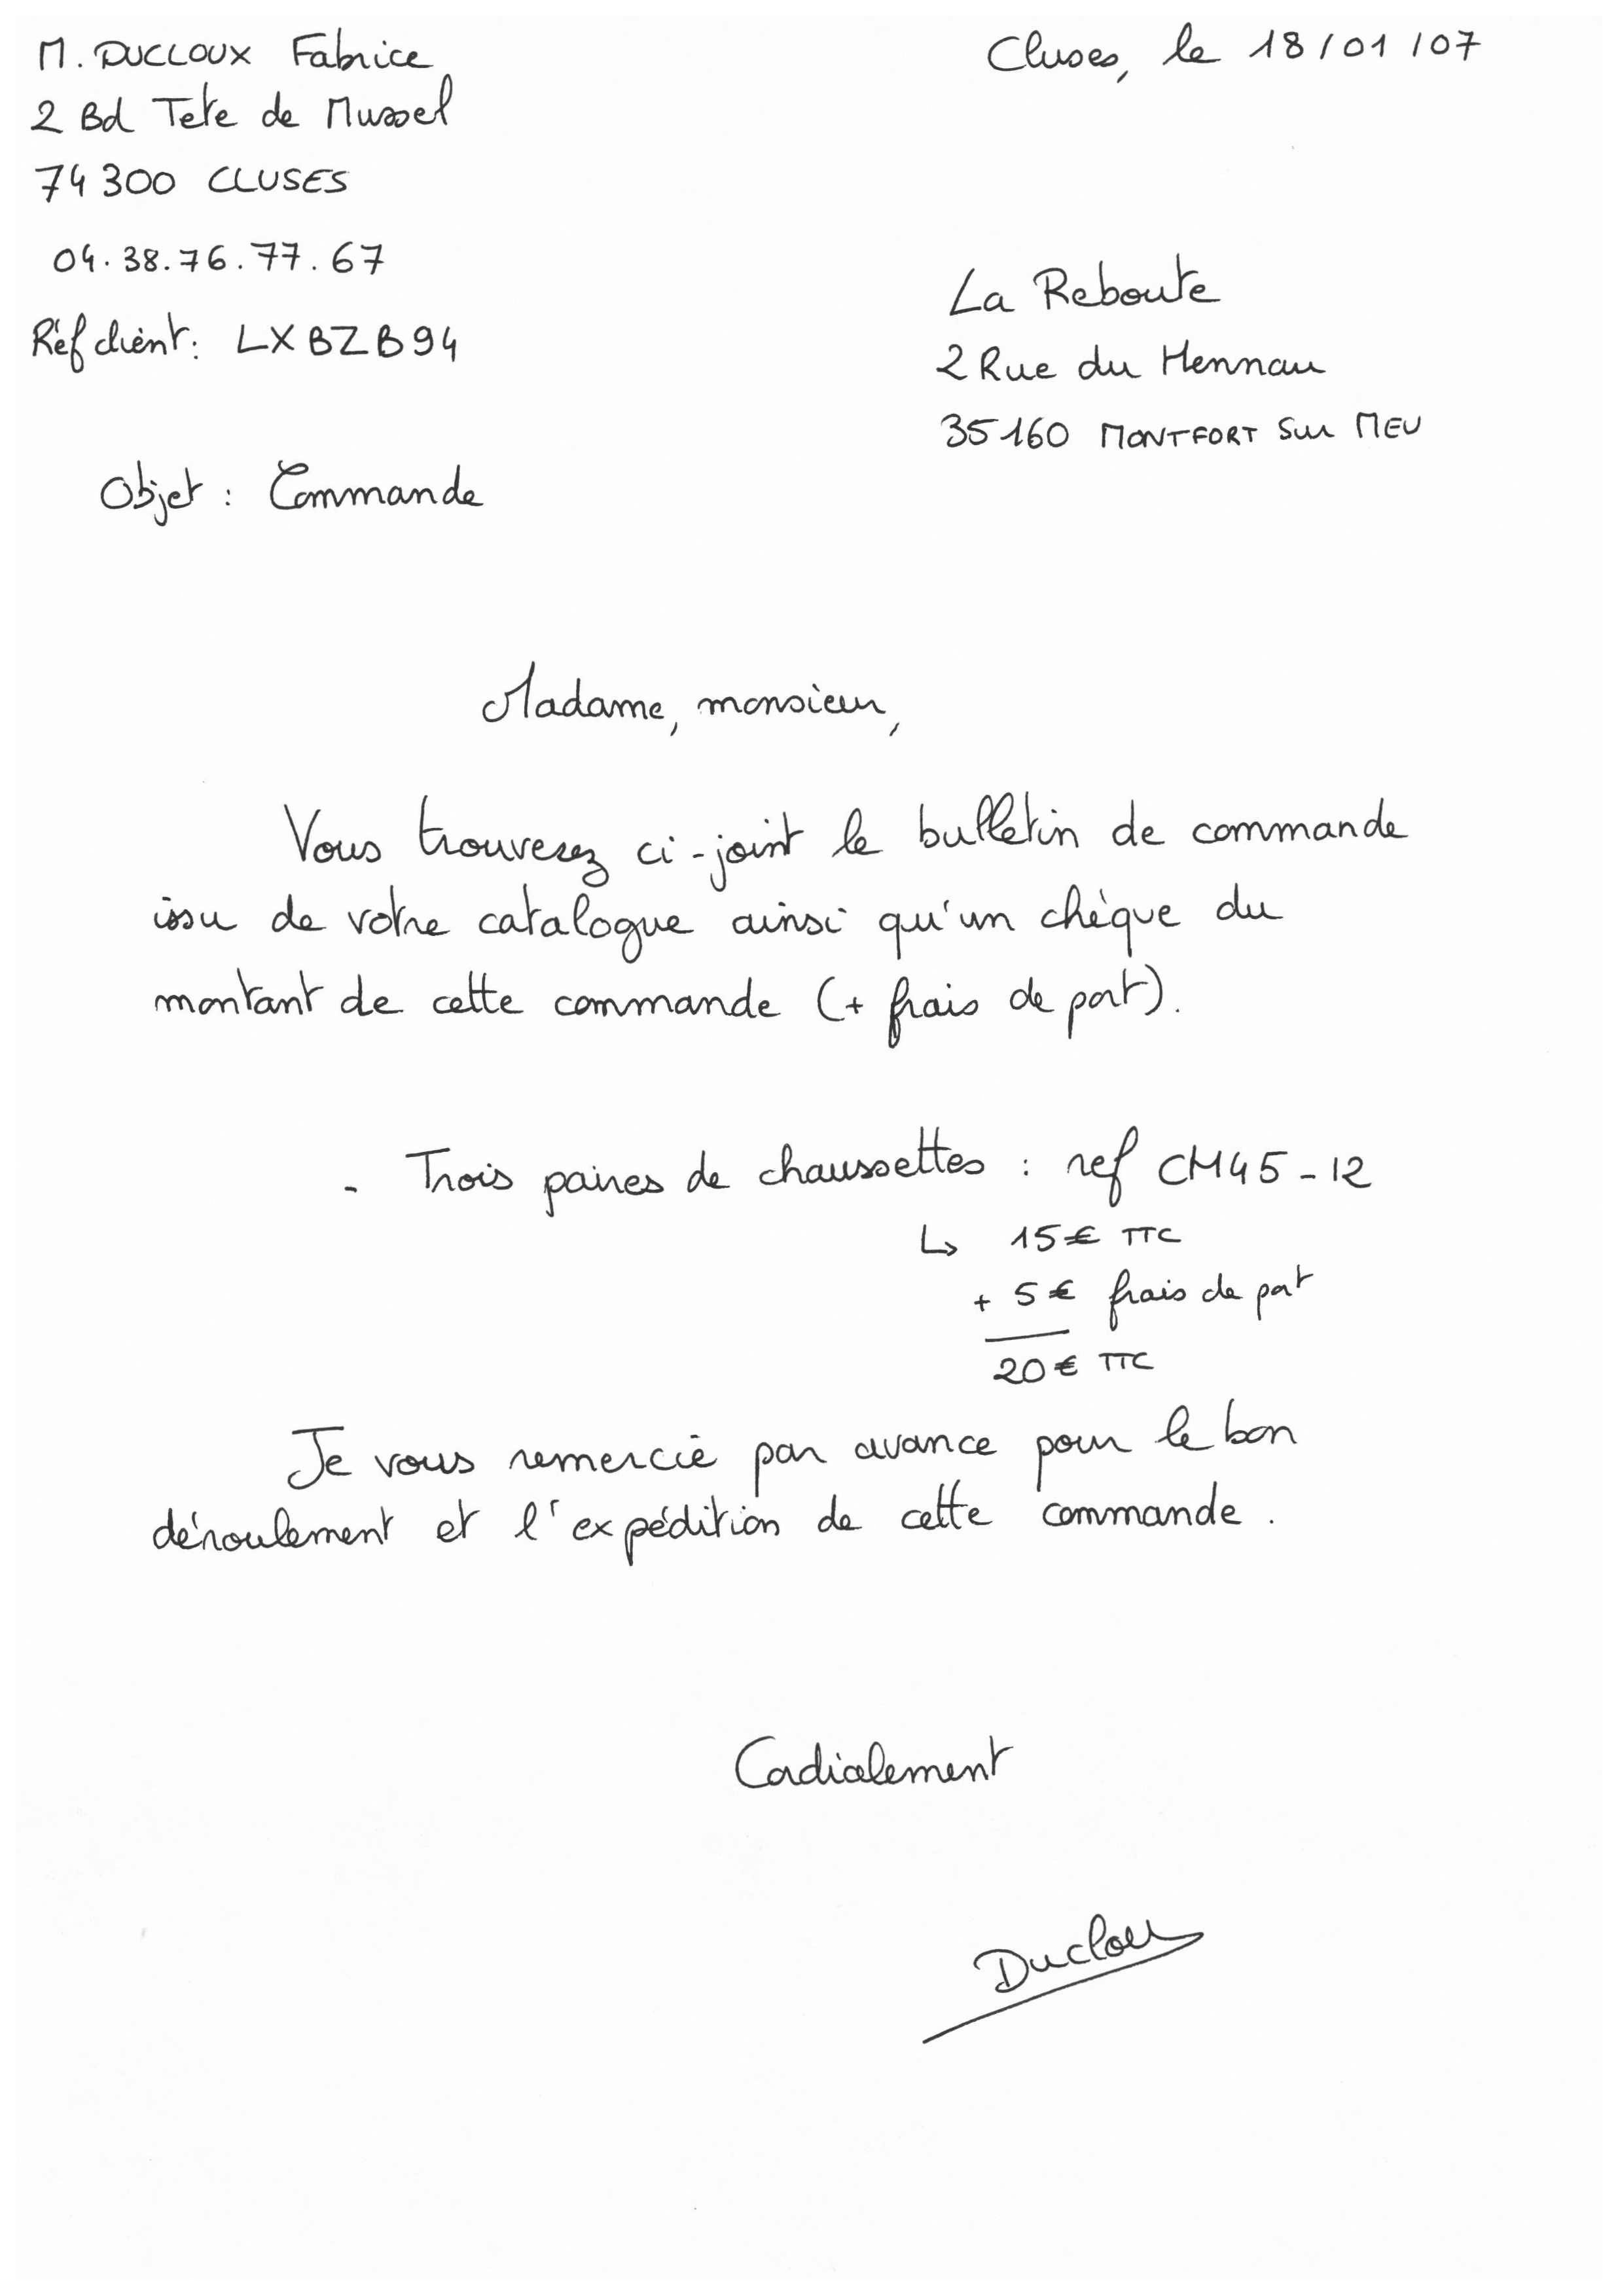 M. DUCLOUX Fabrice
Cluses, le 18/01/07
2 Bd Tete de Mussel
74300 CLUSES
04.38.76.77.67
Réf client : LXBZB94
La Reboute
2 Rue du Hennau
35160 MONTFORT Sur MEU
Objet : Commande
Madame, monsieur,
Vous trouverez ci-joint le bulletin de commande
issu de votre catalogue ainsi qu'un chèque du
montant de cette commande (+ frais de port).
- Trois paires de chaussettes : ref CM45-12
↳ 15€ TTC
+ 5€ frais de port
20€ TTC
Je vous remercie par avance pour le bon
déroulement et l'expédition de cette commande.
Cordialement
Ducloux